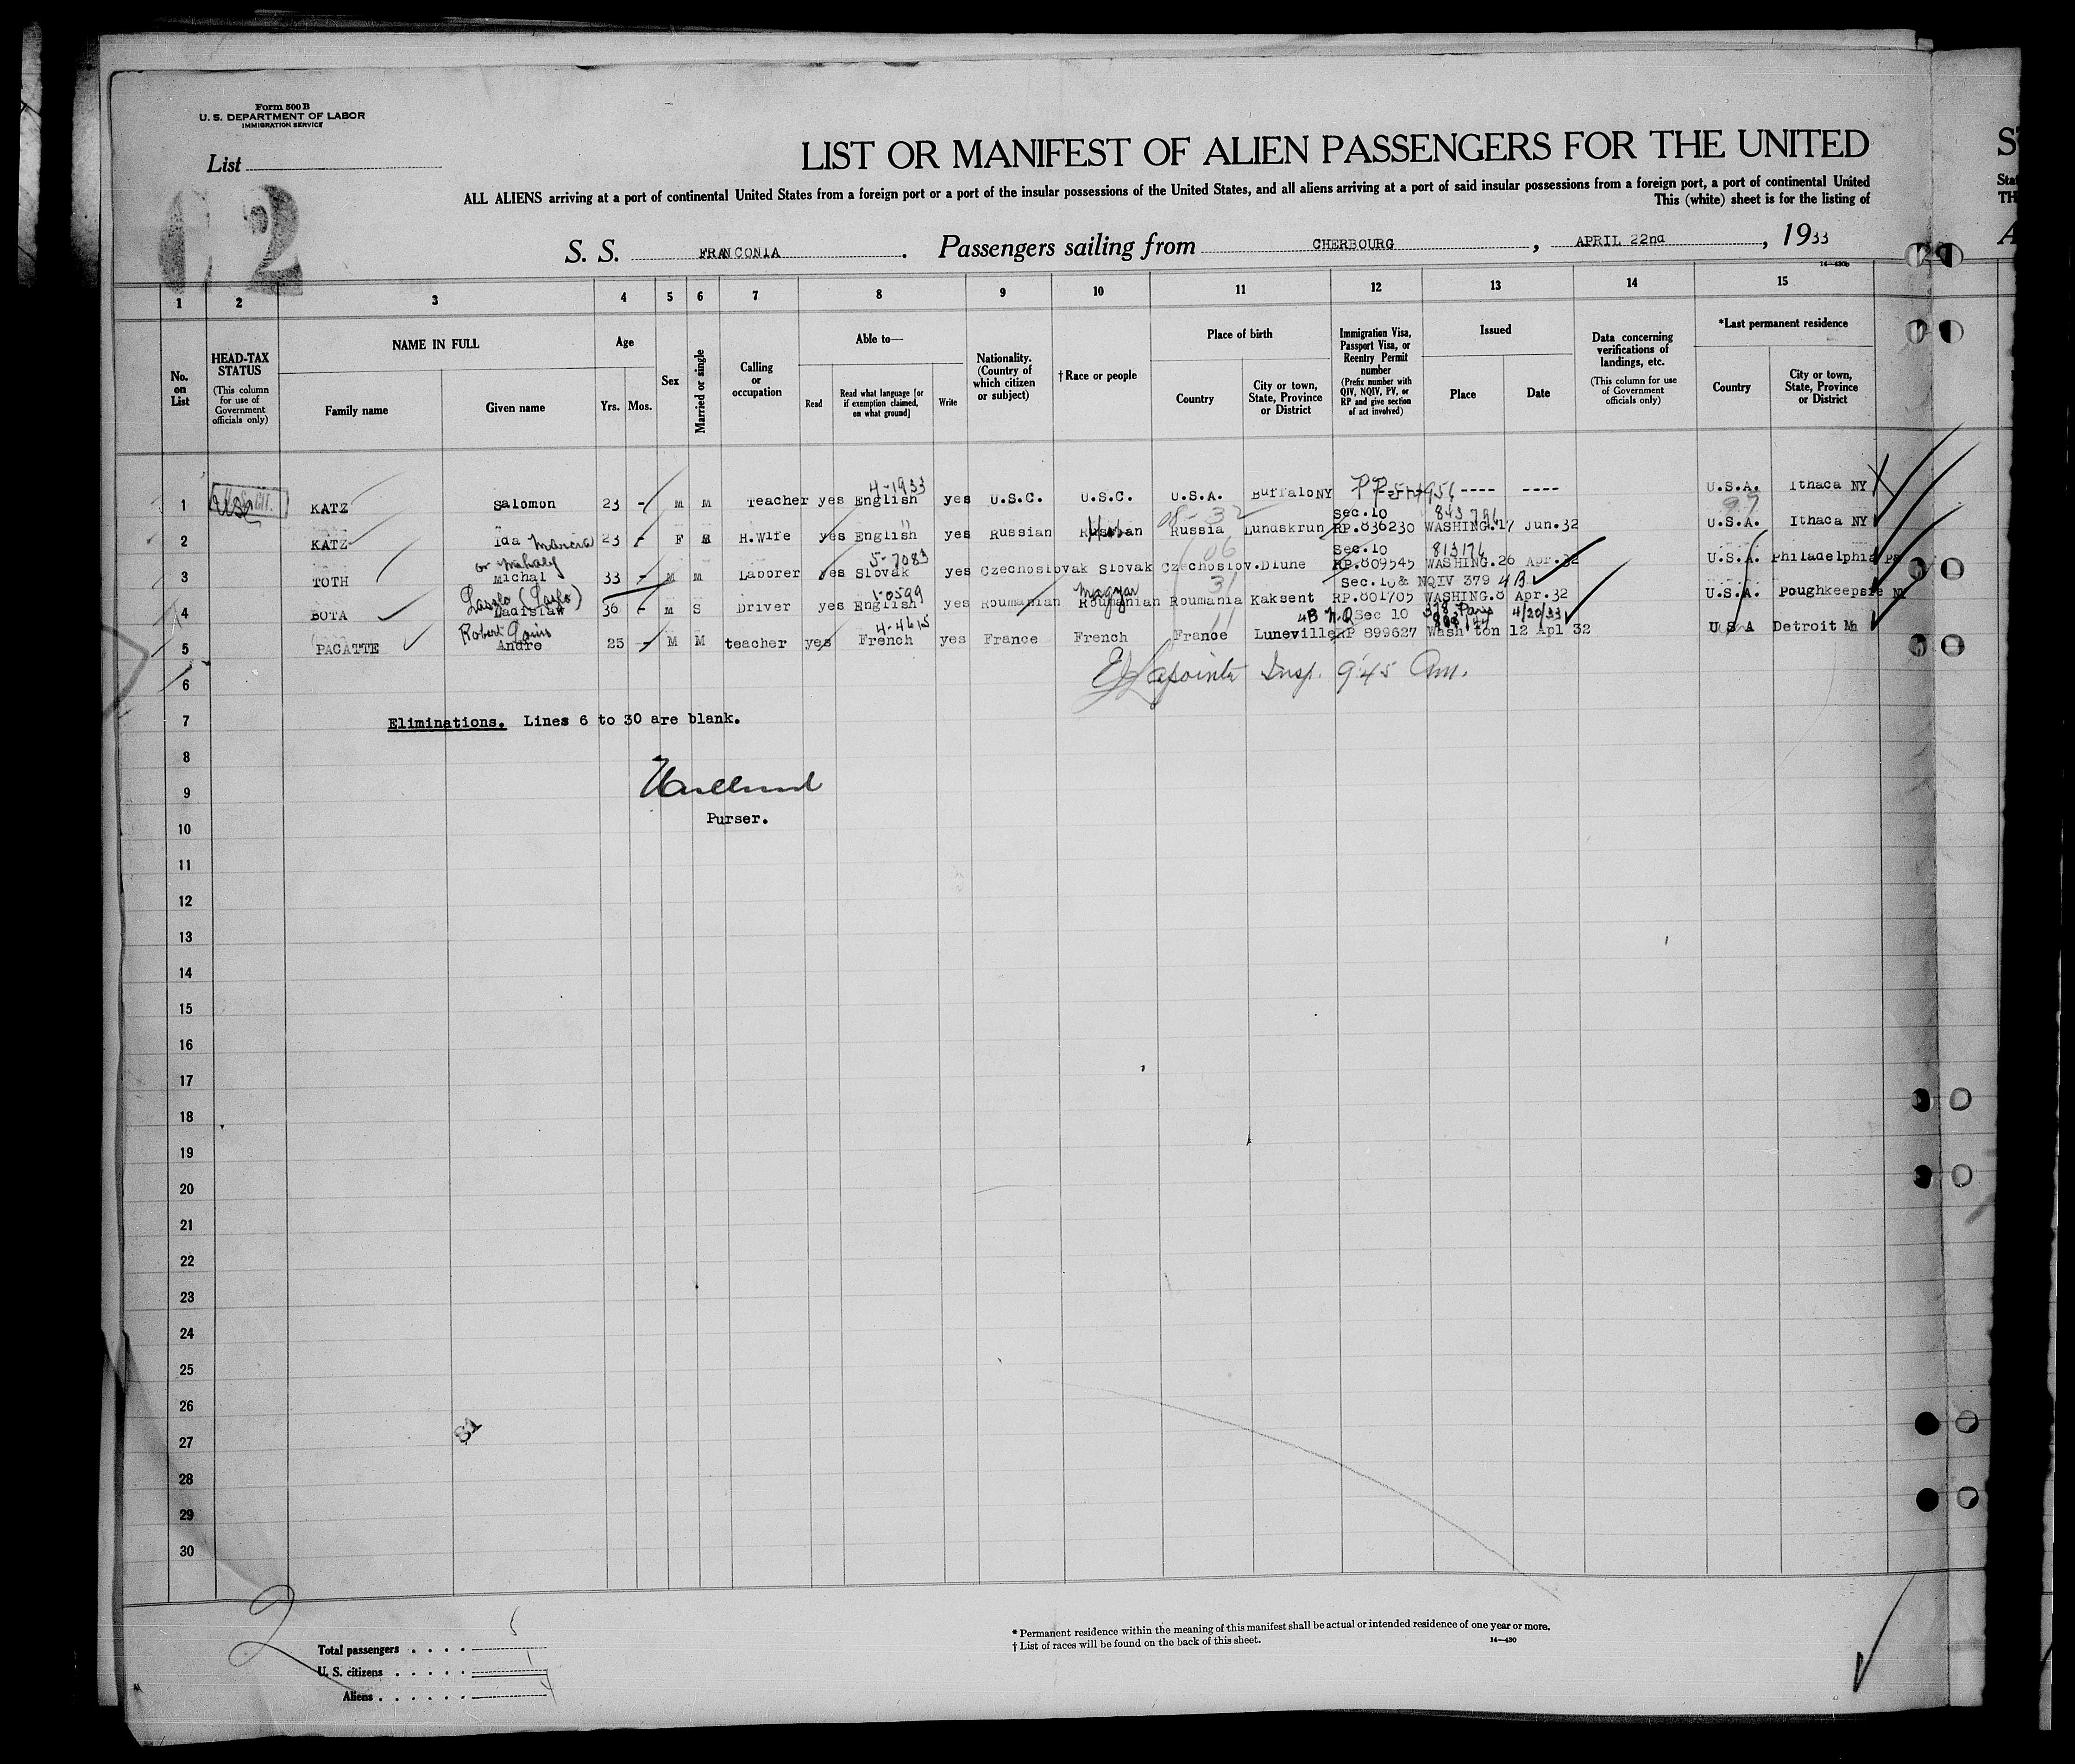 Form 500 B
U. S. DEPARTMENT OF LABOR
IMMIGRATION SERVICE
List
2
LIST OR MANIFEST OF ALIEN PASSENGERS FOR THE UNITED
ALL ALIENS arriving at a port of continental United States from a foreign port or a port of the insular possessions of the United States, and all aliens arriving at a port of said insular possessions from a foreign port, a port of continental United
This (white) sheet is for the listing of
S. S. FRANCONIA. Passengers sailing from CHERBOURG, APRIL 22nd, 1933
14—430b
1 2 3 4 5 6 7 8 9 10 11 12 13 14 15
No. on List
HEAD-TAX STATUS (This column for use of Government officials only)
NAME IN FULL Family name Given name
Age Yrs. Mos.
Sex
Married or single
Calling or occupation
Able to— Read Read what language [or if exemption claimed, on what ground] Write
Nationality. (Country of which citizen or subject)
†Race or people
Place of birth Country City or town, State, Province or District
Immigration Visa, Passport Visa, or Reentry Permit number (Prefix number with QIV, NQIV, PV, or RP and give section of act involved)
Issued Place Date
Data concerning verifications of landings, etc. (This column for use of Government officials only)
*Last permanent residence Country City or town, State, Province or District
4-1933
1 KATZ Salomon 23 - M M Teacher yes English yes U.S.C. U.S.C. U.S.A. Buffalo NY ---- ---- U.S.A. Ithaca NY
Sec.10
2 KATZ Ida Marcia 23 - F M H.Wife yes English yes Russian Russian Russia Lunuskrun RP.836230 WASHING.17 Jun.32 U.S.A. Ithaca NY
or Mihaly 5-7083 Sec.10 813176
3 TOTH Michal 33 - M M Laborer yes Slovak yes Czechoslovak Slovak Czechoslov. Dlune RP.809545 WASHING.26 Apr.32 U.S.A. Philadelphia Pa
Laszlo 1-0599 Magyar 31 Sec.10 & NQIV 379 4B
4 BOTA Ladislaw 36 - M S Driver yes English yes Roumanian Roumanian Roumania Kaksent RP.801705 WASHING.8 Apr.32 U.S.A. Poughkeepsie NY
Robert 4-4615 4B N.Q Sec 10 378 Paris 4/20/33
5 PACATTE Andre 25 - M M teacher yes French yes France French France Luneville RP 899627 Wash'ton 12 Apl 32 U S A Detroit Mn
6 Lapointe Insp. 9:45 Am.
7 Eliminations. Lines 6 to 30 are blank.
8
9
10 Purser.
11
12
13
14
15
16
17
18
19
20
21
22
23
24
25
26
27 81
28
29
30
2
Total passengers . . . . 5
U. S. citizens . . . . . 1
Aliens . . . . . . 4
* Permanent residence within the meaning of this manifest shall be actual or intended residence of one year or more.
† List of races will be found on the back of this sheet.
14—430